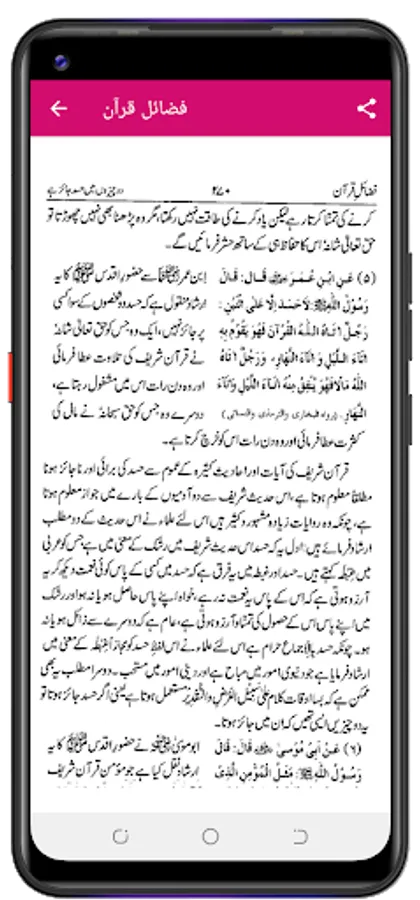 فضائل قرآن
فضائل قرآن ۲۷۰ دو چیزوں میں حسد جائز ہے
کرنے کی تمنا کرتا رہے لیکن یاد کرنے کی طاقت نہیں رکھتا، مگر وہ پڑھنا بھی نہیں چھوڑتا تو
حق تعالیٰ شانہٗ اس کا حفاظ ہی کے ساتھ حشر فرمائیں گے۔
(۵) عَنِ ابْنِ عُمَرَ ﷠ قَالَ: قَالَ
رَسُوْلُ اللّٰهِ ﷺ: لَاحَسَدَ اِلَّا عَلَی اثْنَيْنِ:
رَجُلٌ اٰتَاهُ اللّٰهُ الْقُرْاٰنَ فَهُوَ يَقُوْمُ بِهٖ
اٰنَاءَ اللَّيْلِ وَ اٰنَاءَ النَّهَارِ، وَرَجُلٌ اٰتَاهُ
اللّٰهُ مَالًا فَهُوَ يُنْفِقُ مِنْهُ اٰنَاءَ اللَّيْلِ وَاٰنَاءَ
النَّهَارِ. (رواه البخاری والترمذی والنسائی)
اِبن عمر سے حضورِ اقدس ﷺ کا یہ
ارشاد منقول ہے کہ حسد دو شخصوں کے سوا کسی
پر جائز نہیں، ایک وہ جس کو حق تعالیٰ شانہٗ
نے قرآن شریف کی تلاوت عطا فرمائی
اور وہ دن رات اس میں مشغول رہتا ہے،
دوسرے وہ جس کو حق سبحانہٗ نے مال کی
کثرت عطا فرمائی اور وہ دن رات اس کو خرچ کرتا ہے۔
قرآن شریف کی آیات اور احادیث کثیرہ کے عموم سے حسد کی برائی اور ناجائز ہونا
مطلقاً معلوم ہوتا ہے، اس حدیث شریف سے دو آدمیوں کے بارے میں جواز معلوم ہوتا
ہے، چونکہ وہ روایات زیادہ مشہور وکثیر ہیں اس لئے علماء نے اس حدیث کے دو مطلب
ارشاد فرمائے ہیں: اوّل یہ کہ حسد اس حدیث شریف میں رشک کے معنیٰ میں ہے جس کو عربی
میں غِبطہ کہتے ہیں۔ حسد اور غبطہ میں یہ فرق ہے کہ حسد میں کسی کے پاس کوئی نعمت دیکھ کر یہ
آرزو ہوتی ہے کہ اس کے پاس یہ نعمت نہ رہے، خواہ اپنے پاس حاصل ہو یا نہ ہو اور رشک
میں اپنے پاس اس کے حصول کی تمنا و آرزو ہوتی ہے، عام ہے کہ دوسرے سے زائل ہو یا نہ
ہو۔ چونکہ حسد بالاجماع حرام ہے اس لئے علماء نے اس لفظِ حسد کو مجازاً غبطہ کے معنیٰ میں
ارشاد فرمایا ہے جو دنیوی امور میں مباح ہے اور دینی امور میں مستحب۔ دوسرا مطلب یہ بھی
ممکن ہے کہ بسا اوقات کلام عَلٰی سَبِیْلِ الْفَرْضِ وَالتَّقْدِیْرِ مستعمل ہوتا ہے یعنی اگر حسد جائز ہوتا تو
یہ دو چیزیں ایسی تھیں کہ اِن میں جائز ہوتا۔
(۶) عَنْ اَبِیْ مُوْسٰی ﷜ قَالَ: قَالَ
رَسُوْلُ اللّٰهِ ﷺ: مَثَلُ الْمُؤْمِنِ الَّذِیْ
ابو موسیٰ نے حضورِ اقدس ﷺ کا یہ
ارشاد نقل کیا ہے جو مؤمن قرآن شریف